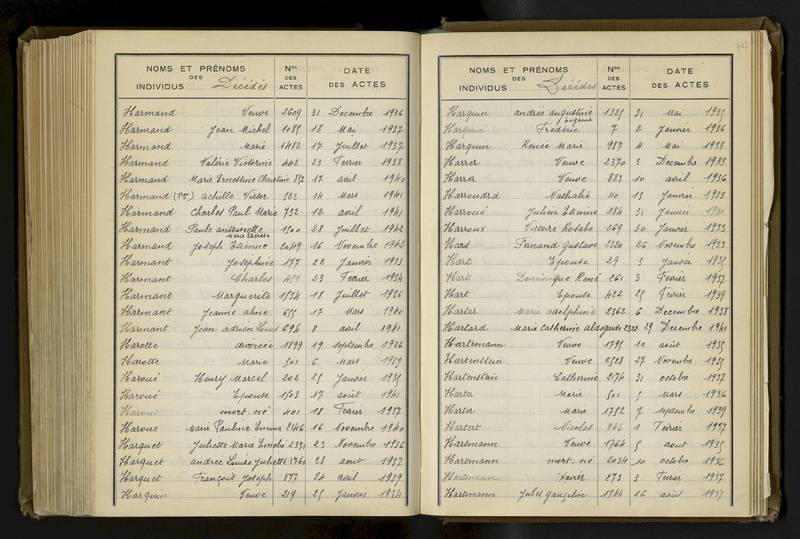 NOMS ET PRÉNOMS DES INDIVIDUS Décédés Nos DES ACTES DATE DES ACTES
Harmand Veuve 2609 31 Decembre 1936
Harmand Jean Michel 1085 18 Mai 1937
Harmand Marie 1482 17 Juillet 1937
Harmand Valérie Victorine 442 23 Fevrier 1938
Harmand Marie Ernestine Christine 17 avril 1940
Harmand achille Victor 523 14 Mars 1941
Harmand Charles Paul Marie 732 12 avril 1941
Harmand Paule antoinette 1300 28 Juillet 1942
Marie Louise
Harmand Joseph Etienne 2049 16 Novembre 1942
Harmant Josephine 177 22 Janvier 1933
Harmant Charles 23 Fevrier 1934
Harmant Marguerite 1534 18 Juillet 1936
Harmant Jeanne aline 655 17 Mars 1940
Harmant Jean adrien Louis 694 8 avril 1941
Harotte divorcée 1899 19 septembre 1936
Harotte Marie 501 6 Mars 1939
Haroué Henry Marcel 202 25 Janvier 1935
Haroué Epouse 1503 17 août 1941
Haroux mort-né 401 18 Fevrier 1937
Haroux Marie Pauline Emma 2146 16 Novembre 1940
Harquet Juliette Marie Emelie 2331 23 Novembre 1936
Harquet andrée Louise Juliette 1760 28 aout 1937
Harquet François Joseph 877 24 avril 1939
Harquin Veuve 219 25 Janvier 1934
NOMS ET PRÉNOMS DES INDIVIDUS Décédés Nos DES ACTES DATE DES ACTES
Harquin andrée augustine 1325 31 Mai 1935
Eugénie
Harquin Frédéric 7 2 Janvier 1936
Harquin Renée Marie 987 4 Mai 1938
Harrer Veuve 2370 3 Decembre 1938
Harrer Veuve 823 10 avril 1936
Harroudrd Nathalie 110 13 Janvier 1933
Harroué Julien Etienne 284 31 Janvier
Harroux Victoire Rosalie 269 30 Janvier 1933
Hars Fernand Gustave 2320 26 Novembre 1933
Hart Epouse 29 3 Janvier 1935
Hart Dominique René 261 3 Fevrier 1937
Hart Epouse 422 25 Fevrier 1939
Hartar Marie adolphine 2362 6 Decembre 1938
Hartard Marie Catherine 2322 29 Decembre 1941
Hartemann Veuve 1795 10 août 1935
Hartenstein Veuve 2528 27 Novembre 1935
Hartenstein Catherine 2174 31 octobre 1937
Harter Marie 501 5 Mars 1936
Harter Marie 1752 7 septembre 1939
Hartert Nicolas 246 1 Fevrier 1937
Hartmann Veuve 1764 5 aout 1935
Hartmann mort-né 2034 10 octobre 1936
Hartmann Xavier 273 3 Fevrier 1937
Hartmann Jules gauzelin 1744 26 août 1937